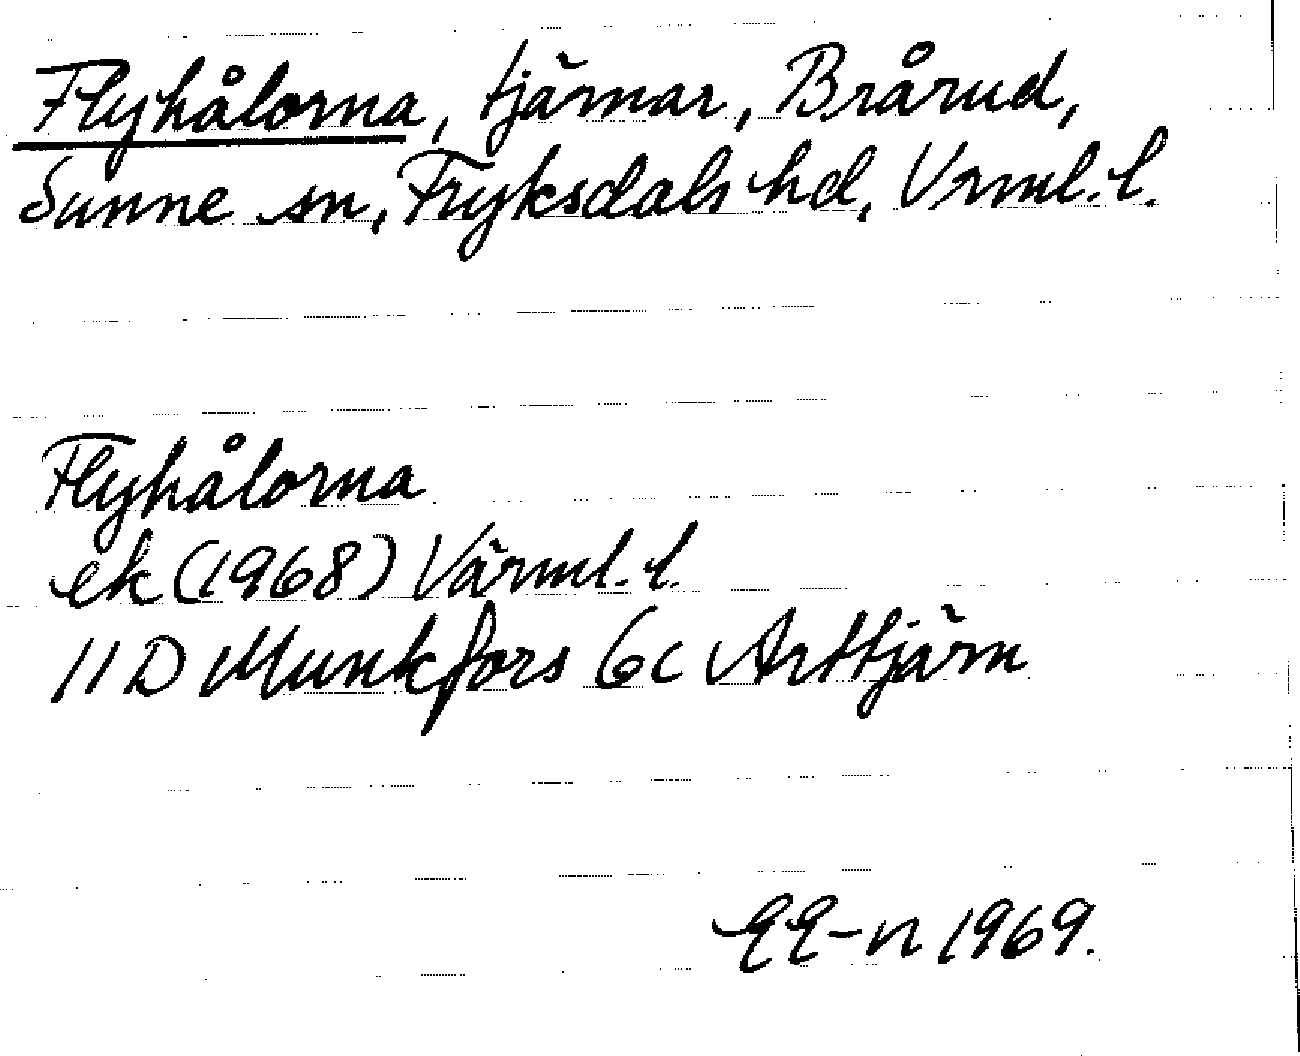 Flyhålorna, tjärnar, Brårud,
Sunne sn, Fryksdals hd, Vrml. l.
Flyhålorna
ek (1968) Värml. l.
11 D Munkfors 6c Arttjärn
EE-n 1969.